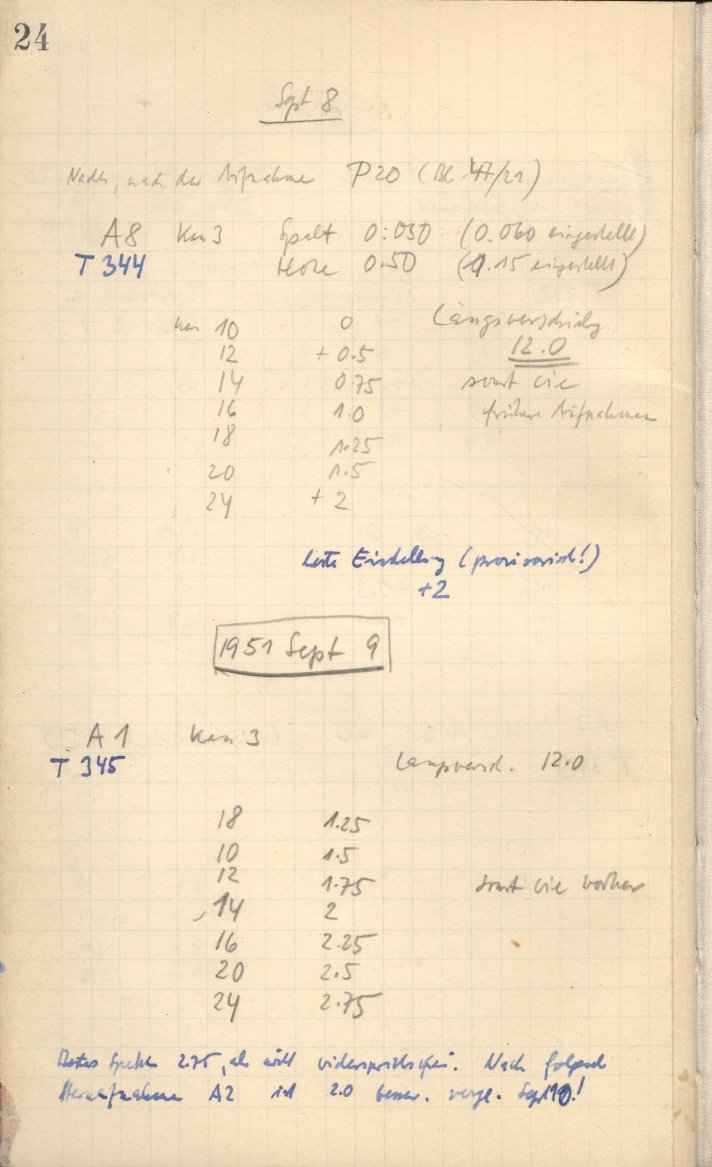 24
Sept 8
nach der Aufnahme P20 (Bl. 47/21)
A8 Kas 3 Spalt 0.030 (0.060 eingestellt)
T 344 Höhe 0.50 (0.15 eingestellt)
Längsverschiebg
10 0
12.0
12 + 0.5
14 0.75 sonst wie
16 1.0 frühere Aufnahmen
18 1.25
20 1.5
24 + 2
Beste Einstellung (provisorisch!)
+2
1951 Sept 9
A 1 Kas 3
T 345 Längsversch. 12.0
18 1.25
10 1.5
12 1.75 sonst wie vorher
14 2
16 2.25
20 2.5
24 2.75
Bestes 2.75, als Nach
Sternaufnahme A2 ist 2.0 besser. vergl. Sept 10!